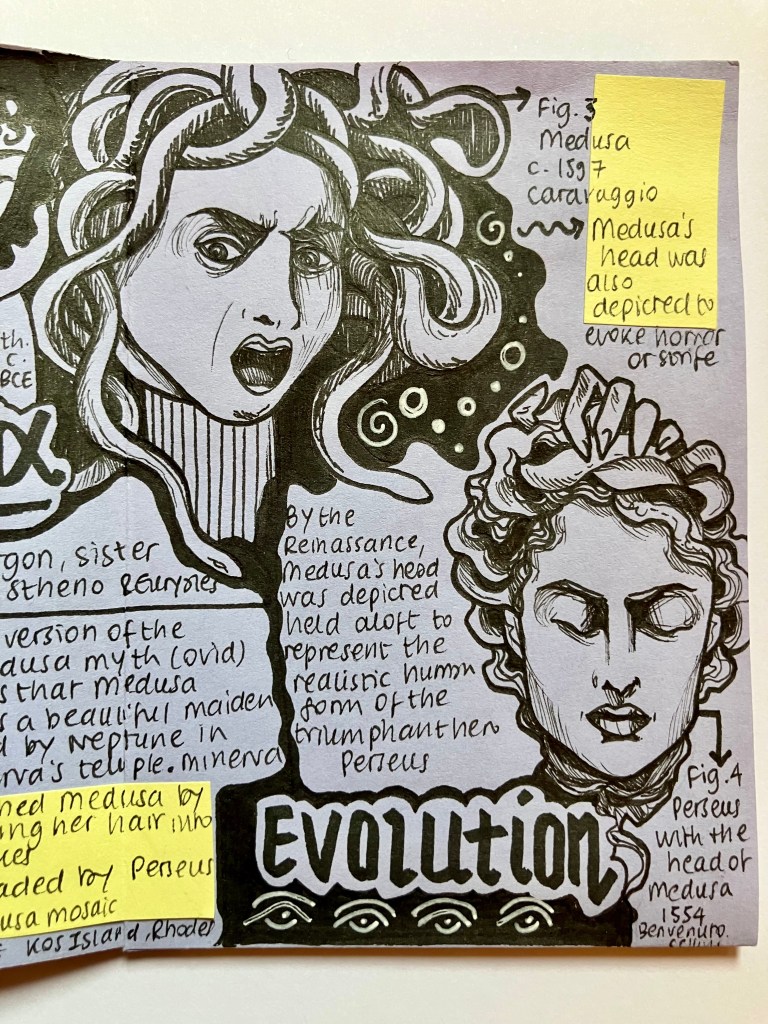 Fig. 3
Medusa
c. 1597
caravaggio
Medusa's
head was
also
depicted to
evoke horror
or strife
th.
C.
BCE
By the
Reinassance,
Medusa's head
was depicted
held aloft to
represent the
realistic human
form of the
triumphant hero
Perseus
gon, sister
Stheno & Euryales
version of the
dusa myth (ovid)
s that Medusa
s a beautiful maiden
d by Neptune in
erva's temple. minerva
ned medusa by
ng her hair into
kes
aded by Perseus
usa mosaic
Kos Island, Rhodes
Evolution
Fig. 4
Perseus
with the
head of
Medusa
1554
Benvenuto